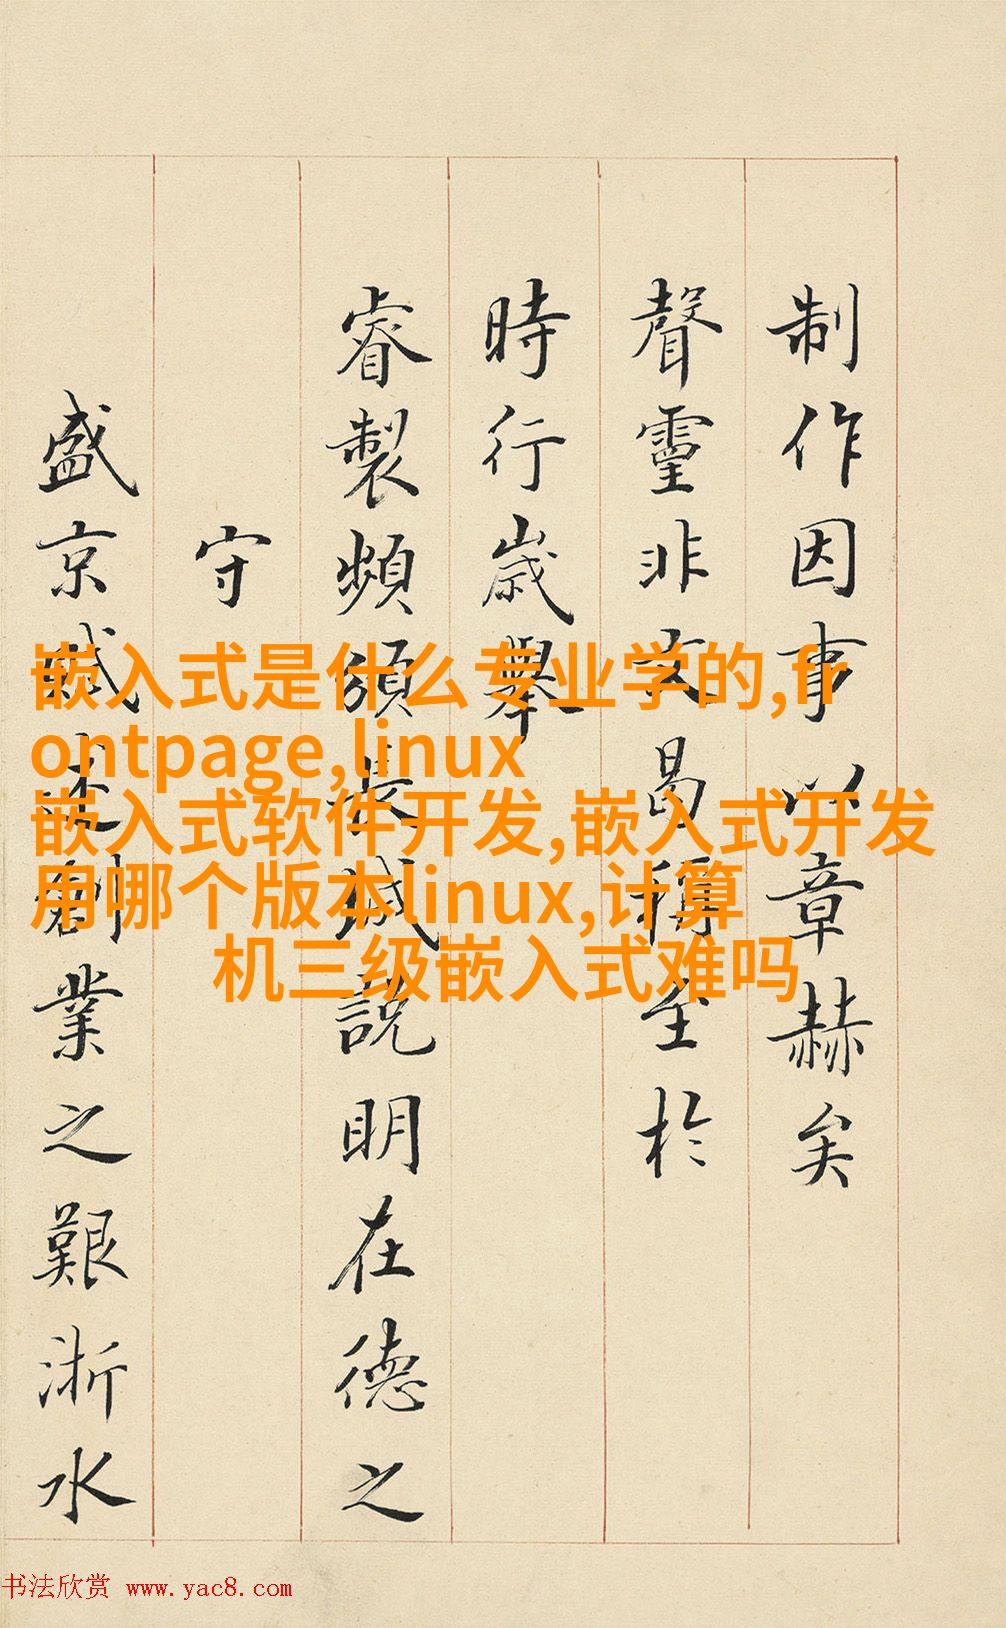 制作因事以章赫矣
聲靈非文曷稱至於
時行歲舉
睿製頻頒長城說明在德之
守
盛京賦述創業之艱浙水
嵌入式是什么专业学的,fr
ontpage,linux
嵌入式软件开发,嵌入式开发
用哪个版本linux,计算
机三级嵌入式难吗
书法欣赏 www.yac8.com